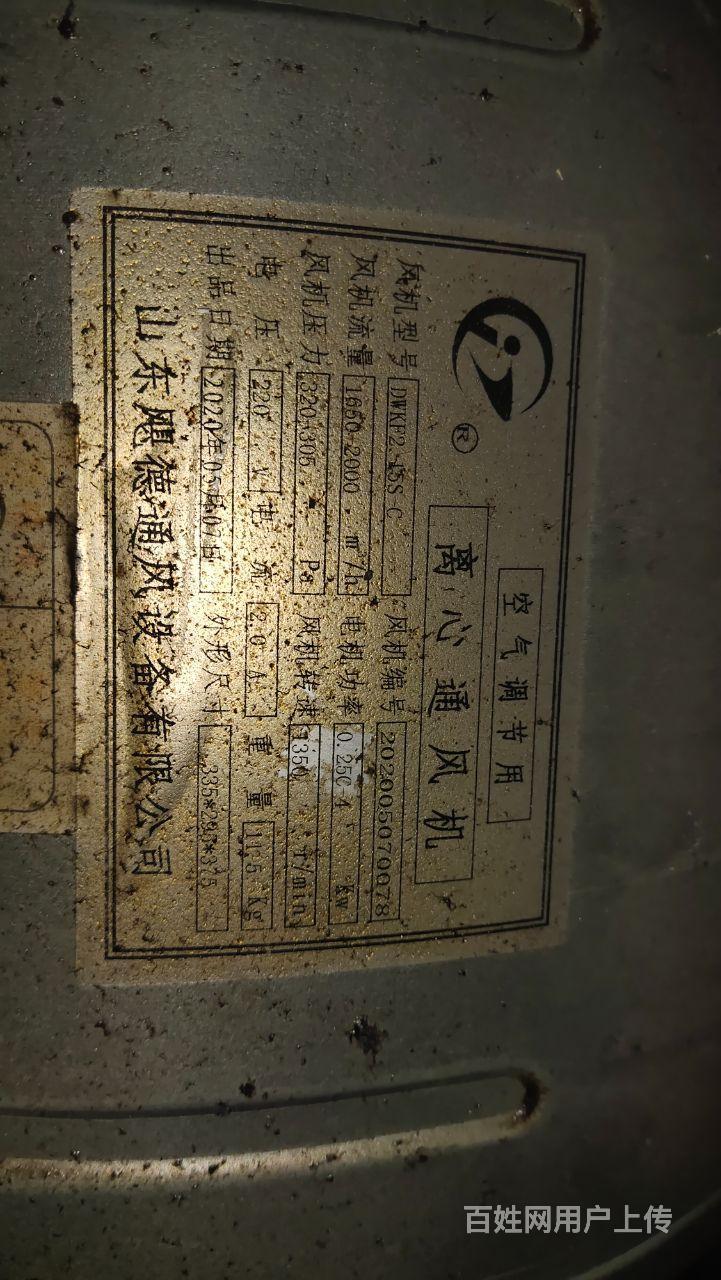 空气调节用
离心通风机
®
风机型号 DWKF2. 5S-C 风机编号 202005070078
风机流量 1650-2000 . m³/h 电机功率 0.25-4 Kw
风机压力 320-305. Pa 风机转速 1350 r/min
电压 220 V 电流 2.0 A 重量 11.5 Kg
出品日期 2020年05月07日 外形尺寸
山东飓德通风设备有限公司
百姓网用户上传